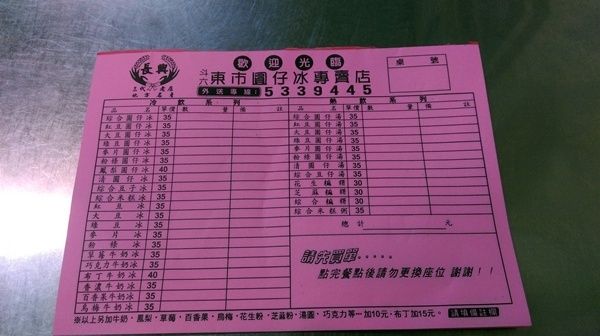 歡迎光臨
長興
三代老店
地方名產
斗六
東市圓仔冰專賣店
外送專線:5339445
桌號
冷飲系列
品名 單價 數量 備註
綜合圓仔冰 35
紅豆圓仔冰 35
大豆圓仔冰 35
綠豆圓仔冰 35
麥片圓仔冰 35
粉條圓仔冰 35
鳳梨圓仔冰 40
清圓仔冰 35
綜合豆子冰 35
綜合米糕冰 35
紅豆冰 35
大豆冰 35
綠豆冰 35
麥片冰 35
粉條冰 35
草莓牛奶冰 35
巧克力牛奶冰 35
布丁牛奶冰 40
香濃牛奶冰 35
百香果牛奶冰 35
烏梅牛奶冰 35
熱飲系列
品名 單價 數量 備註
綜合圓仔湯 35
紅豆圓仔湯 35
大豆圓仔湯 35
綠豆圓仔湯 35
麥片圓仔湯 35
粉條圓仔湯 35
清圓仔湯 35
綜合豆仔湯 35
花生麻糬 30
芝麻麻糬 30
綜合麻糬 30
綜合米糕粥 35
總計 元
請先買單.....
點完餐點後請勿更換座位 謝謝!!
※以上另加牛奶、鳳梨、草莓、百香果、烏梅、花生粉、芝麻粉、湯圓、巧克力等…加10元,布丁加15元。 請填備註欄